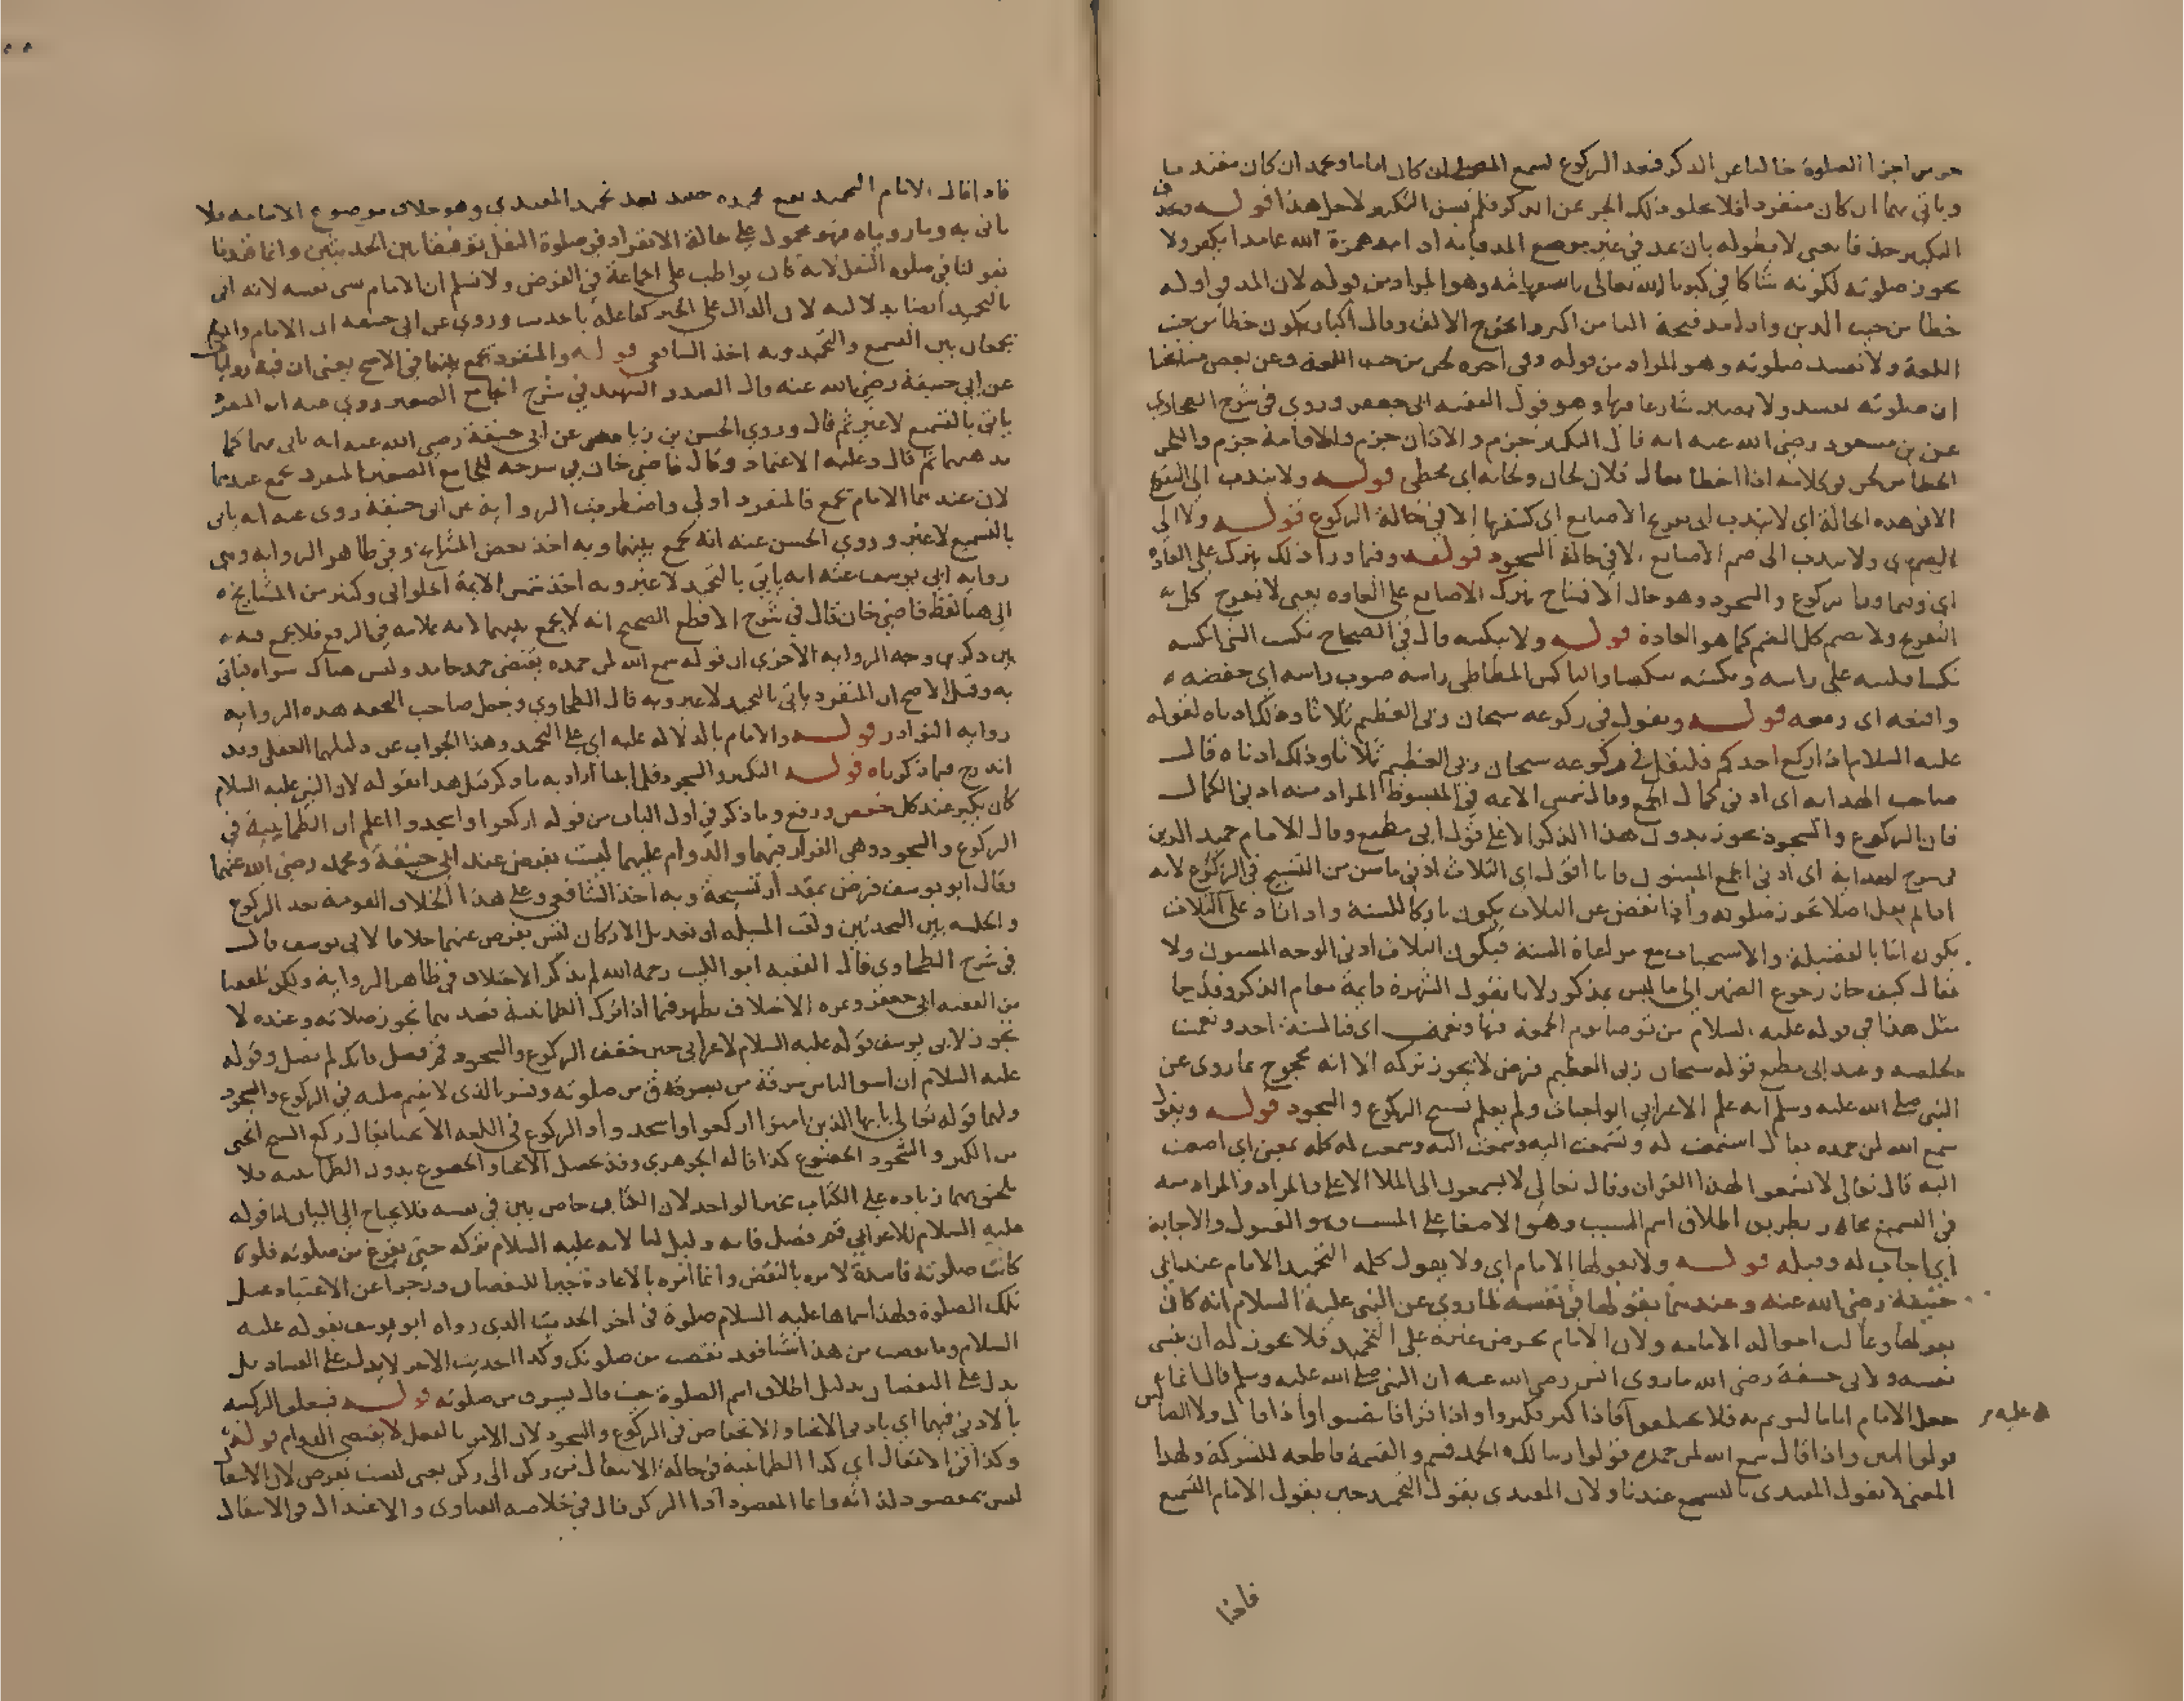 جزء من اجزا الصلوة خاليا عن الذكر فبعد الركوع يسمع المصلى ان كان اماما ويحمد ان كان مقتديا
وياتي بهما ان كان منفردا فلا يخلو ذلك الجزء عن الذكر فلم يسن التكبير لاجل هذا قوله ويحذف
التكبير حذفا يعني لا يطوله بان يمد في غير موضع المد فانه اذا مد همزة الله عامدا يكفر ولا
يجوز صلوته لكونه شاكا في كبريا الله تعالى باستفهامه وهو المراد من قوله لان المد في اوله
خطا من حيث الدين واذا مد فتحة البا من اكبر واخرج الالف وقال اكبار يكون خطا من حيث
اللغة ولا تفسد صلوته وهو المراد من قوله وفي اخره لحن من حيث اللغة وعن بعض مشايخنا
ان صلوته تفسد ولا يصير شارعا بها وهو قول الفقيه ابي جعفر وروي في شرح الطحاوي
عن بن مسعود رضي الله عنه انه قال التكبير جزم والاذان جزم والاقامة جزم واللحن
الخطا من لحن في كلامه اذا اخطا يقال فلان لحان ولحانه اي يخطى قوله ولا يندب الى التفريج
الا في هذه الحالة اي لا يندب الى تفريج الاصابع اي كشفها الا في حالة الركوع قوله ولا الى
الضم اي ولا يندب الى ضم الاصابع الا في حالة السجود قوله وفيما وراء ذلك يترك على العادة
اي وفيما وراء الركوع والسجود وهو حال الافتتاح يترك الاصابع على العاده يعني لا يفرج كل
التفريج ولا يضم كل الضم كما هو العادة قوله ولا ينكسه قال في الصحاح نكست الشى انكسه
نكسا قلبته على راسه ونكسته تنكيسا والناكس المطاطى راسه صوب راسه اي خفضه
واقنعه اى رفعه قوله ويقول في ركوعه سبحان ربي العظيم ثلاثا وذلك ادناه لقوله
عليه السلام اذا ركع احدكم فليقل في ركوعه سبحان ربي العظيم ثلاثا وذلك ادناه قال
صاحب الهدايه اى ادنى كمال الجمع وقال شمس الائمه في المبسوط المراد منه ادنى الكمال
فان الركوع والسجود يجوز بدون هذا الذكر الا على قول ابي مطيع وقال الامام حميد الدين
في شرح الهداية اى ادنى الجمع المسنون واما اقول اي الثلاث ادنى ما سن من التسبيح في الركوع لانه
اذا لم يقل اصلا يجوز صلوته واذا نقص عن الثلاث يكون تاركا للسنة واذا زاد على الثلاث
يكون اتيا بالفضيلة والاستحباب مع مراعاة السنة فيكون الثلاث ادنى الوجه المسنون ولا
يقال كيف جاز رجوع الضمير الى ما ليس بمذكور لانا نقول الشهرة قايمة مقام الذكر وقد جا
مثل هذا في قوله عليه السلام من توضا يوم الجمعة فبها ونعمت اى فبالسنة اخذ ونعمت
الخصله وعند ابي مطيع قوله سبحان ربي العظيم فرض لا يجوز تركه الا انه محجوج بما روى عن
النبي صلى الله عليه وسلم انه علم الاعرابي الواجبات ولم يعلم تسبيح الركوع والسجود قوله ويقول
سمع الله لمن حمده يقال استمعت له وتسمعت اليه وسمعت اليه وسمعت له كله بمعنى اي اصغيت
اليه قال تعالى لا تسمعوا لهذا القران وقال تعالى لا يسمعون الى الملا الاعلى والمراد
في التسميع مجاز بطريق اطلاق اسم السبب وهو الاصغا على المسبب وهو القبول والاجابة
اي اجاب له وقبله قوله ولا يقولها الامام اى ولا يقول كلمة التحميد الامام عند ابي
حنيفة رضي الله عنه وعندهما يقولها في نفسه لما روي عن النبي عليه السلام انه كان
يقولها وغالب احواله الامامه ولان الامام يحرض غيره على التحميد فلا يجوز له ان ينسى
نفسه ولابي حنيفة رضي الله ما روى انس رضي الله عنه ان النبي صلى الله عليه وسلم قال انما
جعل الامام اماما ليوتم به فلا تختلفوا عليه فاذا كبر فكبروا واذا قرا فانصتوا واذا قال ولا الضالين
قولوا امين واذا قال سمع الله لمن حمده قولوا ربنا لك الحمد قسم والقسمة قاطعه للشركة ولهذا
المعنى لا يقول المقتدى بالتسميع عندنا ولان المقتدى يقول التحميد حين يقول الامام التسميع
فاذا
فاذا قال الامام التحميد يقع تحميده بعد تحميد المقتدي وهو خلاف موضوع الامامه فلا
ياتى به وما روياه فهو محمول على حالة الانفراد في صلوة النفل توفيقا بين الحديثين وانما قيدنا
بقولنا في صلوة النفل لانه كان يواظب على الجماعة في الفرض ولا نسلم ان الامام نسى نفسه لانه اتى
بالتحميد ايضا بدلالته لان الدال على الخير كفاعله بالحديث وروي عن ابي حنيفة ان الامام
يجمعان بين التسميع والتحميد وبه اخذ الشافعي قوله والمنفرد يجمع بينهما في الاصح يعني ان فيه روايات
عن ابي حنيفة رضي الله عنه قال الصدر الشهيد في شرح الجامع الصغير روي عنه ان المنفرد
ياتي بالتسميع لا غير ثم قال وروي الحسن بن زياد عن ابي حنيفة رضي الله عنه انه ياتي بهما كما
مذهبهما ثم قال وعليه الاعتماد وقال قاضي خان في شرحه للجامع الصغير المنفرد يجمع عندهما
لان عندهما الامام يجمع فالمنفرد اولى واضطربت الرواية عن ابي حنيفة روى عنه انه ياتى
بالتسميع لا غير وروي الحسن عنه انه يجمع بينهما وبه اخذ بعض المشايخ وفي ظاهر الروايه وهى
روايه ابي يوسف عنه انه ياتي بالتحميد لا غير وبه اخذ شمس الايمة الحلواني وكثير من المشايخ
الى هنا لفظ قاضي خان قال في شرح الاقطع الصحيح انه لا يجمع بينهما
ثم ذكر وجه الروايه الاخرى ان قوله سمع الله لمن حمده يقتضي حمد حامد وليس هناك سواه فياتى
به وقيل الاصح ان المنفرد ياتي بالتحميد لا غير وبه قال الطحاوي وجعل صاحب التحفه هذه الروايه
روايه النوادر قوله والامام بالدلالة عليه اي على التحميد وهذا الجواب عن دليلهما العقلي وقد
اندرج فيما ذكرناه قوله التكبير والسجود فلما بينا اراد به ما ذكر قبل هذا بقوله لان النبي عليه السلام
كان يكبر عند كل خفض ورفع وما ذكر في اول الباب من قوله اركعوا واسجدوا اعلم ان الطمانينة في
الركوع والسجود وهى القرار فيهما والدوام عليهما ليست بفرض عند ابي حنيفة ومحمد رضي الله عنهما
وقال ابو يوسف فرض بمقدار تسبيحة وبه اخذ الشافعي وعلى هذا الخلاف القومة بعد الركوع
والجلسه بين السجدتين ولقب المسئله ان تعديل الاركان ليس بفرض عندهما خلافا لابي يوسف قال
في شرح الطحاوى قال الفقيه ابو الليث رحمه الله لم يذكر الاختلاف في ظاهر الرواية ولكن تلقفنا
من الفقيه ابي جعفر وثمرة الاختلاف تظهر فيما اذا ترك الطمانينة فعندهما تجوز صلاته وعنده لا
تجوز لابي يوسف قوله عليه السلام لاعرابي حين خفف الركوع والسجود قم فصل فانك لم تصل وقوله
عليه السلام ان اسوا الناس سرقة من يسرق من صلوته وفسر بالذي لا يقيم صلبه في الركوع والسجود
ولهما قوله تعالى يا ايها الذين امنوا اركعوا واسجدوا والركوع في اللغه الانحنا يقال ركع الشيخ انحنى
من الكبر والسجود الخضوع كذا قاله الجوهري وقد يحصل الانحنا والخضوع بدون الطمانينه فلا
يلحق بهما زياده على الكتاب بخبر الواحد لان الكتاب خاص بين في نفسه فلا يحتاج الى البيان اما قوله
عليه السلام للاعرابي قم فصل فانه دليل لنا لانه عليه السلام تركه حتى يفرغ من صلوته فلو
كانت صلوته فاسدة لامره بالنقض وانما امره بالاعادة جبرا للنقصان وزجرا عن الاعتياد بمثل
تلك الصلوة ولهذا سماها عليه السلام صلوة في اخر الحديث الذي رواه ابو يوسف بقوله عليه
السلام وما نقصت من هذا شيئا فقد نقصت من صلوتك وكذا الحديث الاخر لا يدل على الفساد بل
يدل على النقصان بدليل اطلاق اسم الصلوة حيث قال يسرق من صلوته قوله فيتعلق الركنية
بالادنى فيهما اي بادنى الانحنا والانخفاض في الركوع والسجود لان الامر بالفعل لا يقتضي الدوام قوله
وكذا في الانتقال اي كذا الطمانينة في حالة الانتقال من ركن الى ركن يعني ليست بفرض لان الانتقال
ليس بمقصود لذاته وانما المقصود اداء الركن قال في خلاصه الفتاوى والاعتدال في الانتقال